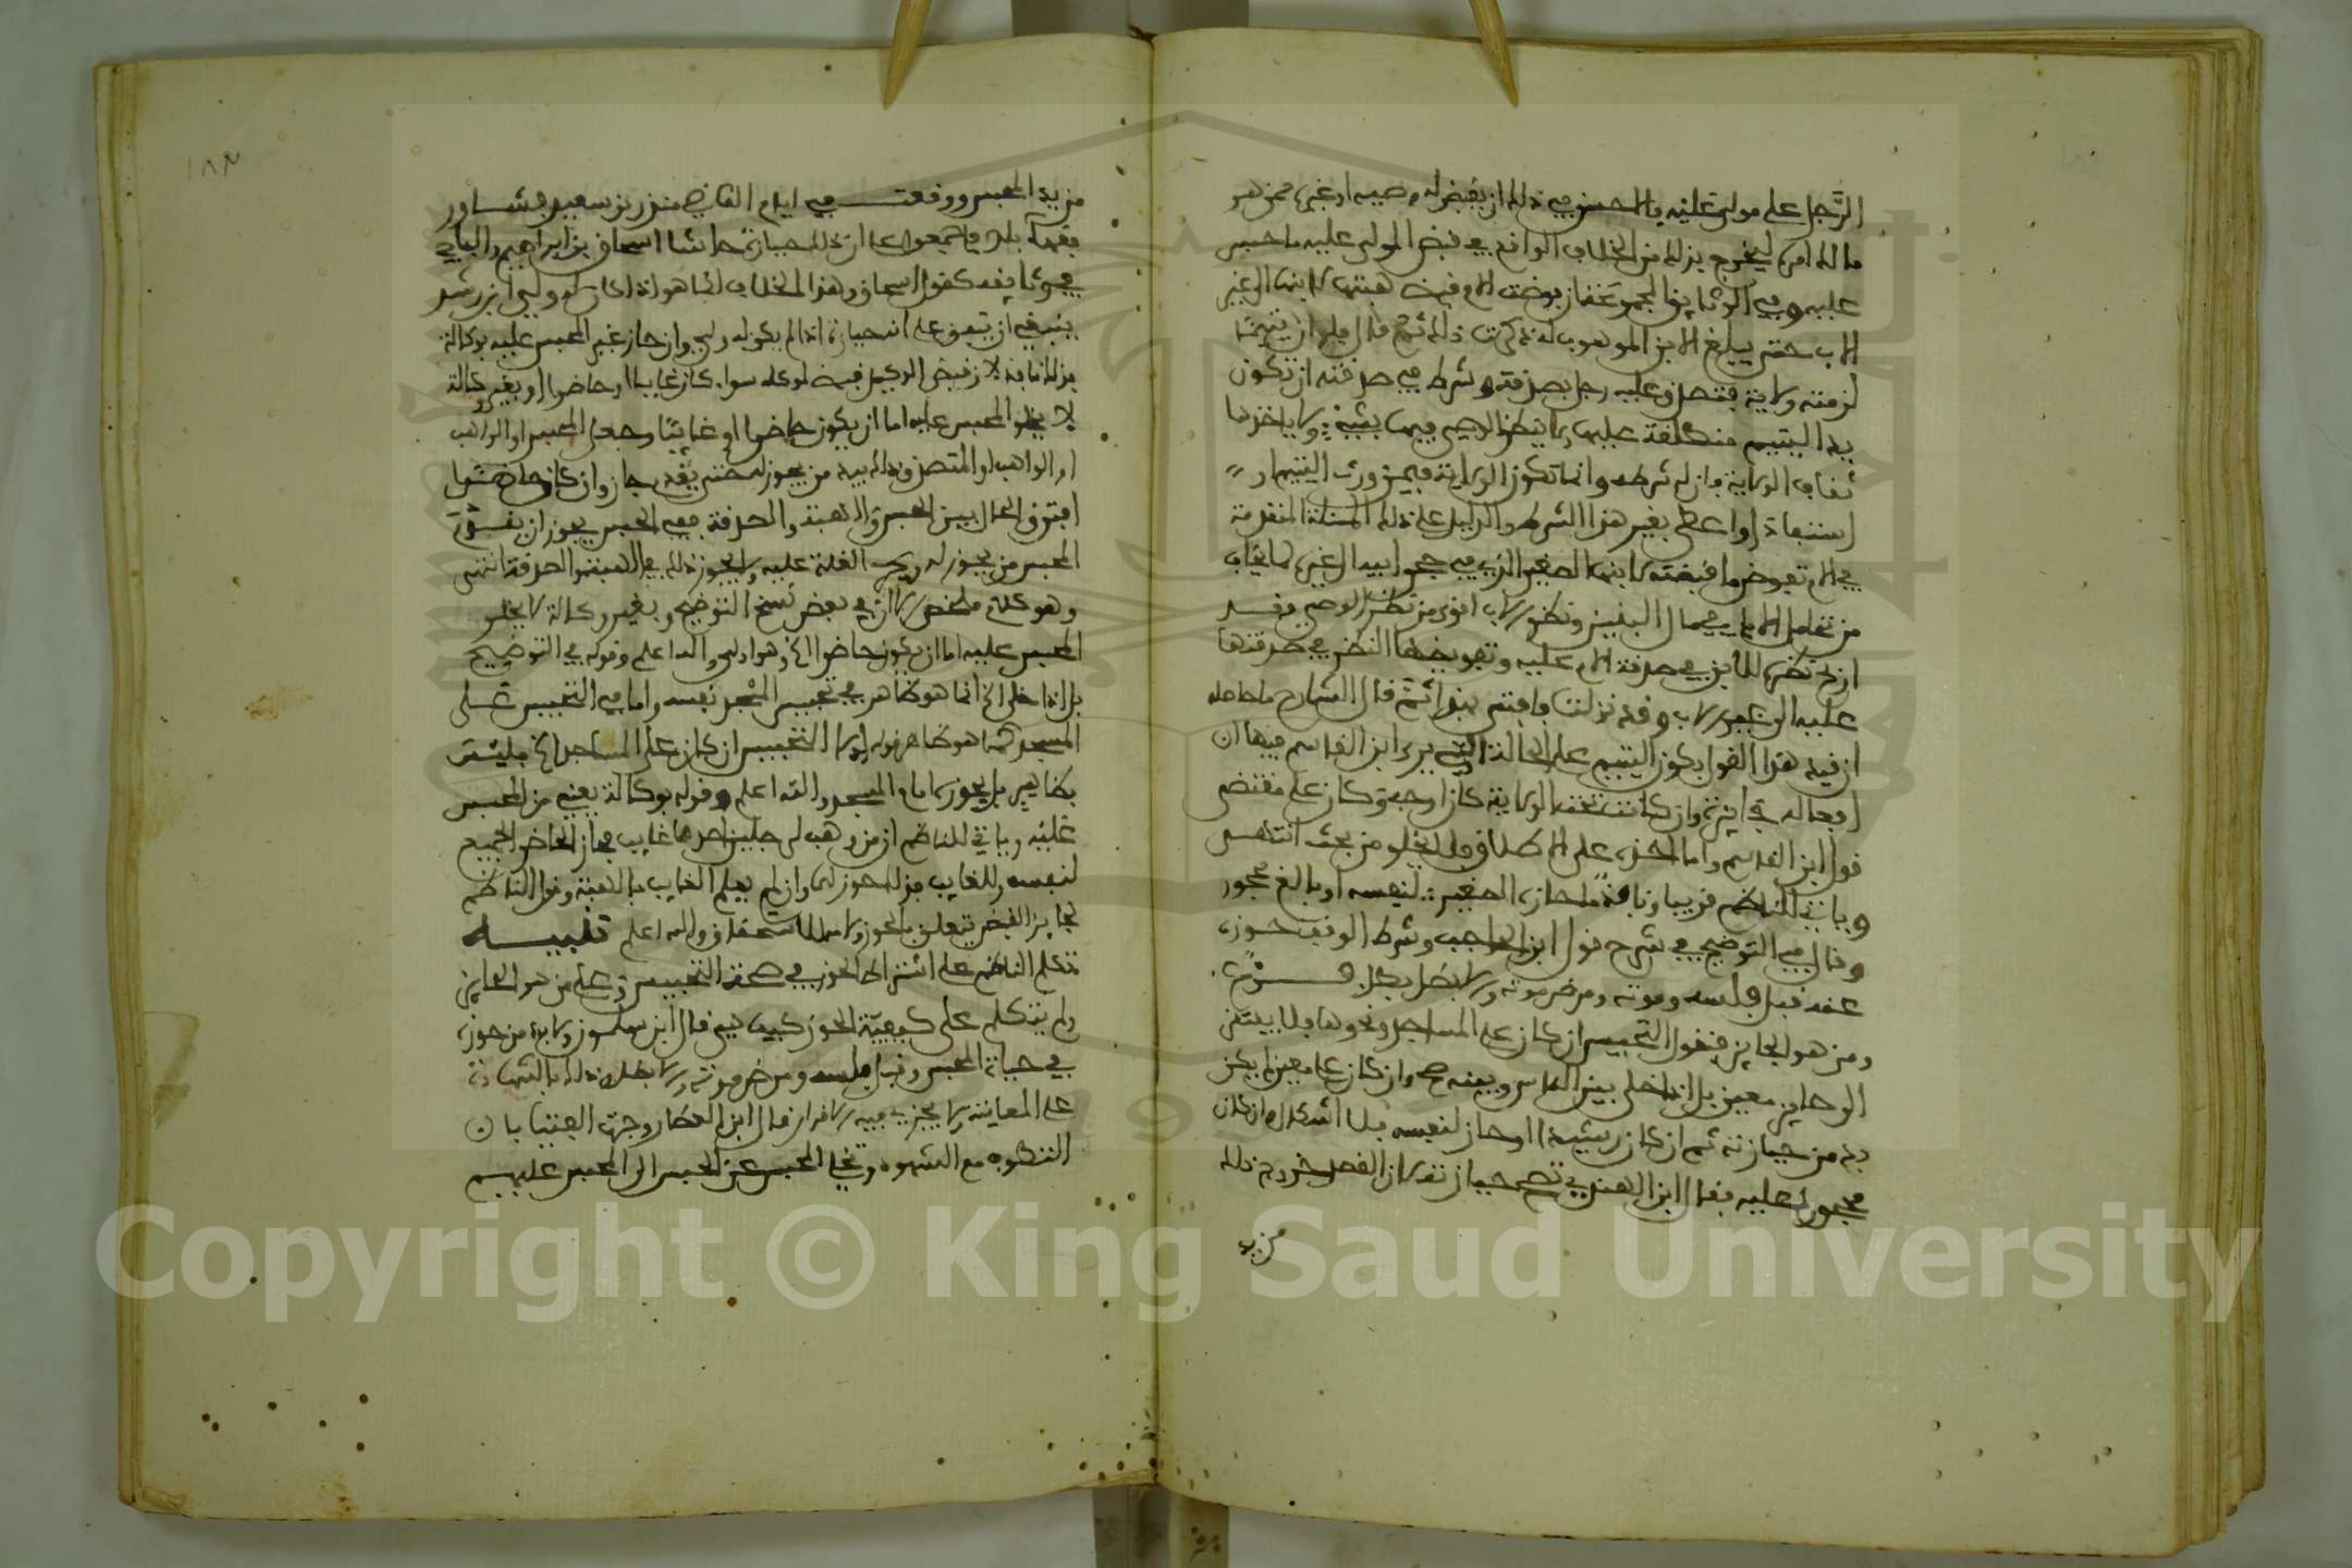 الرجل على مولى عليه فالحسن في ذلك ان يقبض له وصيه او غيره ممن هو
ما لك امره ليخرج بذلك من الخلاف الواقع في قبض المولى عليه ما حبس
عليه وفي الوثائق المجموعة فان فوضت الام قبض هبتها لابنها الى غير
الاب حتى يبلغ الابن الموهوب له ذكرت ذلك ثم قال فلو ان يتيما
لزمته ولاية فتصدق عليه رجل بصدقة وشرط في صدقته ان تكون
بيد اليتيم منطلقة عليها ولا ينظر الوصي فيها بشيء ولا ياخذها
ثقاف الولاية فان له شرطه وانما تكون الولاية فيمن ورث اليتيم او
استفاد او اعطي بغير هذا الشرط والدليل على ذلك المسئلة المتقدمة
في الام تفوض ما قبضته لابنها الصغير الذي في حجر ابيه الى غيره لما يخاف
من تحامل الاباء في مال البنين ونظر الاب اقوى من نظر الوصي وقد
ازيح نظره للابن في صدقة الام عليه وتفويضها النظر في صدقتها
عليه الى غير الاب وقد نزلت فافتي بهذا ثم قال الشارح ما حاصله
ان قيد هذا القول بكون اليتيم على الحالة التي يرى ابن القاسم فيها ان
افعاله جايزة وان كانت تحت الولاية كان اوجه وكان على مقتضى
قول ابن القاسم واما اخذه على الاطلاق فلا يخلو من بحث انتهى
وياتي للناظم قريبا ونافذ ما حازه الصغير لنفسه او بالغ محجور
وقال في التوضيح في شرح قول ابن الحاجب وشرط الوقف حوزه
عنه قبل فلسه وموته ومرض موته والا بطل بكل
ومن هو الحايز فنقول التحبيس ان كان على المساجد ونحوها فلا يفتقر
الى حايز معين بل اذا خلى بين الناس وبينه صح وان كان على معين لم يكن
بد من حيازته ثم ان كان رشيدا وحاز لنفسه فلا اشكال وان كان
محجورا عليه فقال ابن الهندي تصح حيازته لان القصد خروج ذلك
من يد
من يد المحبس ووقعت في ايام القاضي منذر بن سعيد فشاور
فقهاء بلده فاجمعوا على ان تلك حيازة حاشا اسحاق بن ابراهيم والباجي
في وثايقه كقول اسحاق وهذا الخلاف انما هو اذا كان له ولي ابن رشد
ينبغي ان يتفق على ان حيازته اذا لم يكن له ولي وان حاز غير المحبس عليه بوكالة
فذلك نافذ لان قبض الوكيل قبض لموكله سواء كان غايبا او حاضرا او بغير وكالة
لا يخلو المحبس عليه اما ان يكون حاضرا او غايبا وجعل المحبس او الواهب
او الواهب او المتصدق ذلك بيد من يحوزه حتى يقدم جاز وان كان حاضرا
افترق الحال بين الحبس والهبة والصدقة ففي الحبس يجوز ان يقدم
المحبس من يحوز له ويجري الغلة عليه ولا يجوز ذلك في الهبة والصدقة انتهى
وهو كلام ملخص الا ان في بعض نسخ التوضيح وبغير وكالة لا يخلو
المحبس عليه اما ان يكون حاضرا الخ وهو اولى والله اعلم وقوله في التوضيح
بل اذا خلى الخ انما هو ظاهر في تحبيس المسجد نفسه واما في التحبيس على
المسجد كما هو ظاهر قوله اولا التحبيس ان كان على المساجد الخ فليس
بظاهر بل يحوز امام المسجد والله اعلم وقوله بوكالة يعني من المحبس
عليه وياتي للناظم ان من وهب لرجلين احدهما غايب فحاز الحاضر الجميع
لنفسه وللغايب فذلك حوز لهما وان لم يعلم الغايب بالهبة وقول الناظم
لجايز القبض يتعلق بالحوز واللام للاستحقاق والله اعلم تنبيه
تكلم الناظم على اشتراط الحوز في صحة التحبيس وعلى من هو الحايز
ولم يتكلم على كيفية الحوز كيف هي قال ابن سلمون ولا بد من حوزه
في حياة المحبس وقبل فلسه ومرض موته والا بطل ذلك بالشهادة
على المعاينة ولا يجزي فيه الاقرار قال ابن العطار وجرت الفتيا بان
التطوف مع الشهود وتخلي المحبس عن الحبس الى المحبس عليهم
١٨٣
Copyright © King Saud University